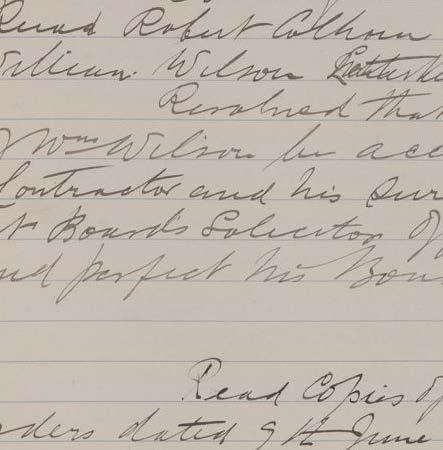 Read Robert Colhoun
William Wilson
Resolved that
of Wm Wilson be acc
Contractor and his sur
at Board's Solicitor Of
and perfect his Bon
Read Copies of
orders dated 9th June